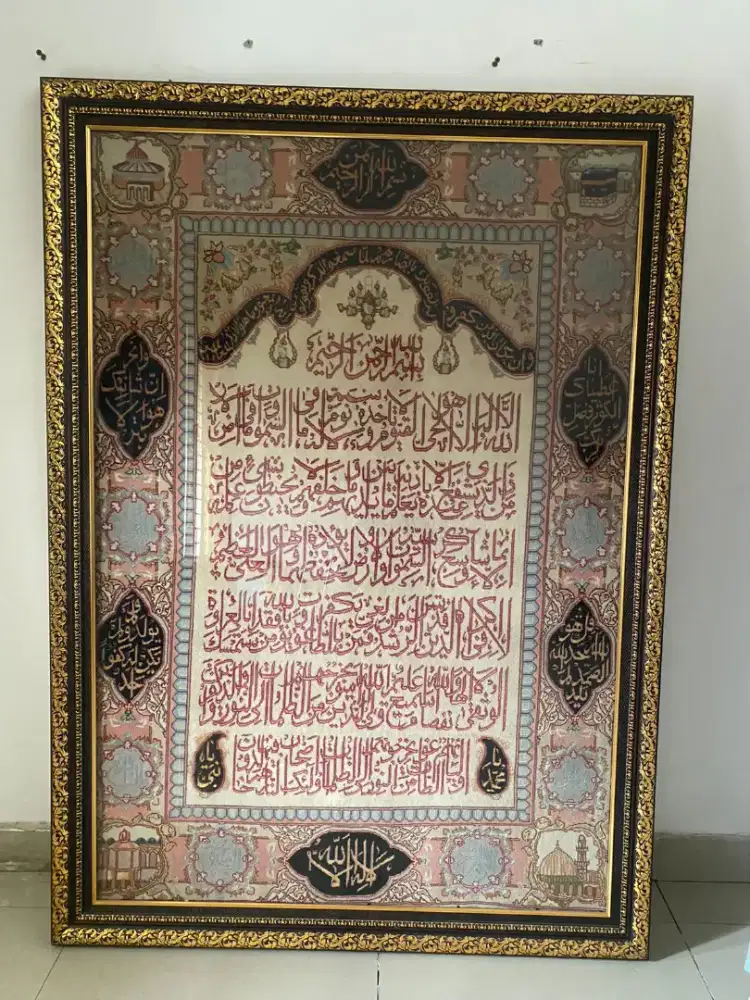 بسم الله الرحمن الرحيم
وان يكاد الذين كفروا ليزلقونك بابصارهم لما سمعوا الذكر ويقولون انه لمجنون
بسم الله الرحمن الرحيم
الله لا اله الا هو الحي القيوم لا تأخذه سنة ولا نوم له ما في السموات وما في الارض
من ذا الذي يشفع عنده الا باذنه يعلم ما بين ايديهم وما خلفهم ولا يحيطون بشيء من علمه
الا بما شاء وسع كرسيه السموات والارض ولا يؤده حفظهما وهو العلي العظيم
لا اكراه في الدين قد تبين الرشد من الغي فمن يكفر بالطاغوت ويؤمن بالله فقد استمسك بالعروة
الوثقى لا انفصام لها والله سميع عليم الله ولي الذين امنوا يخرجهم من الظلمات الى النور والذين كفروا
اولياؤهم الطاغوت يخرجونهم من النور الى الظلمات اولئك اصحاب النار هم فيها خالدون
يا محمد
يا نبي
انا
اعطيناك
الكوثر فصل
لربك
وانحر
ان شانئك
هو الا
بتر
قل هو
الله احد الله
الصمد لم
يلد
ولم
يولد ولم
يكن له كفوا
احد
لا اله الا الله